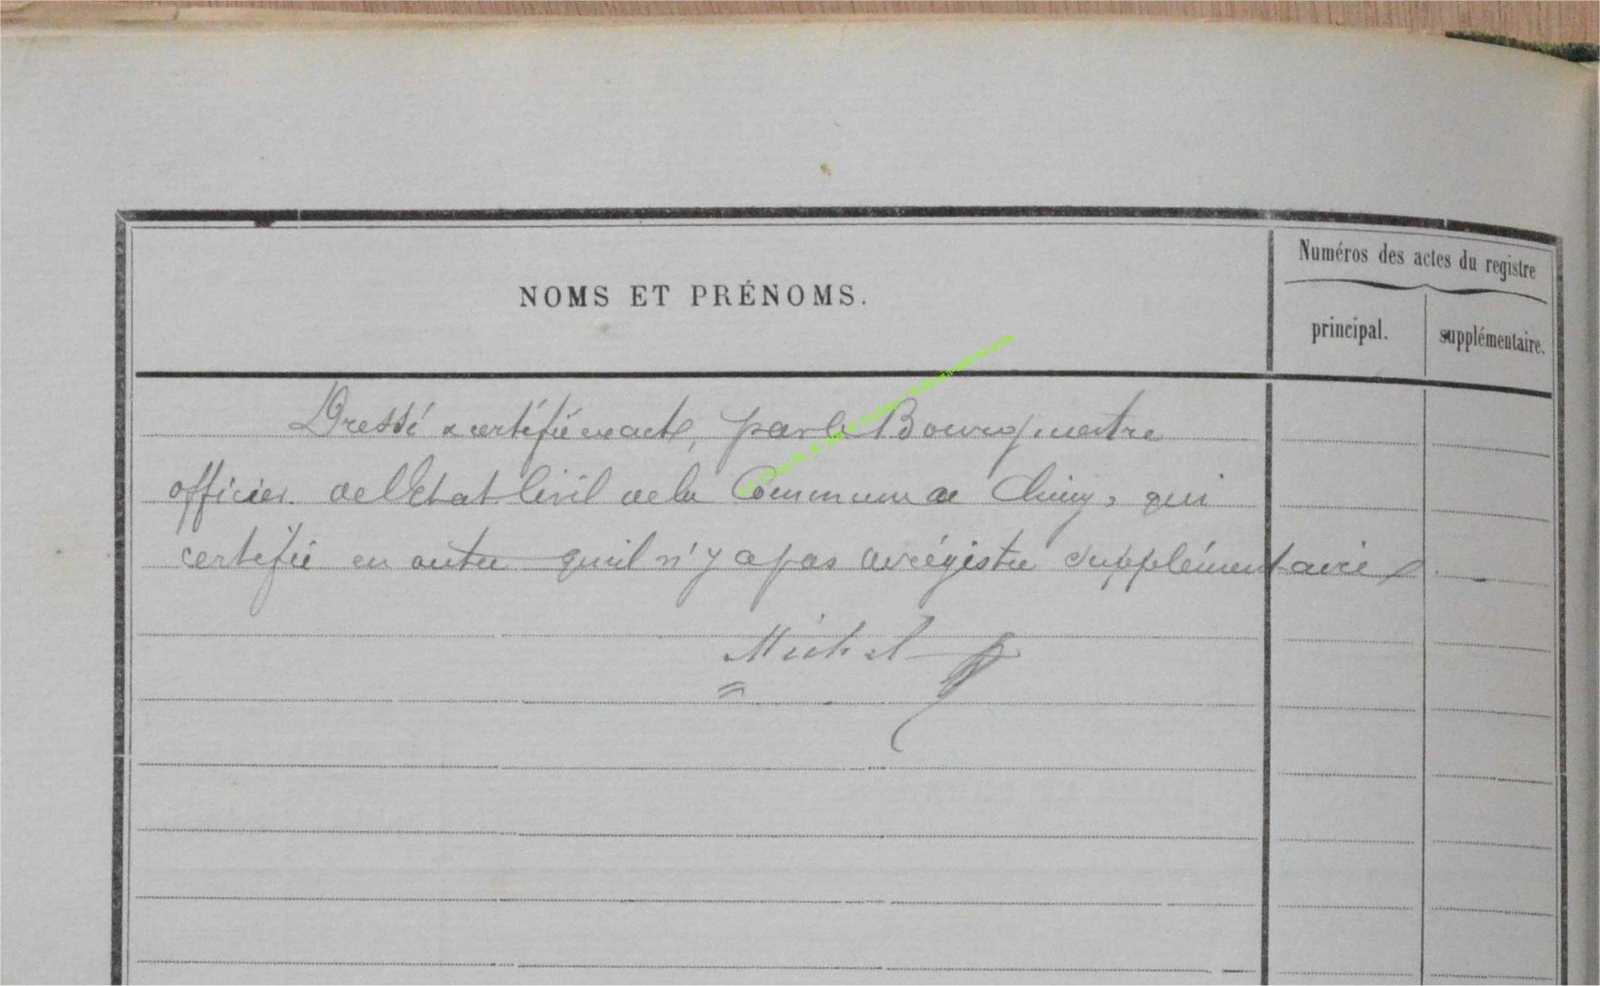 NOMS ET PRÉNOMS.
Numéros des actes du registre
principal.
supplémentaire.
Dressé & certifié exact, par le Bourgmestre
officier de l'Etat Civil de la Commune de Chiny, qui
certifie en outre qu'il n'y a pas de régistre supplémentaire
Michel